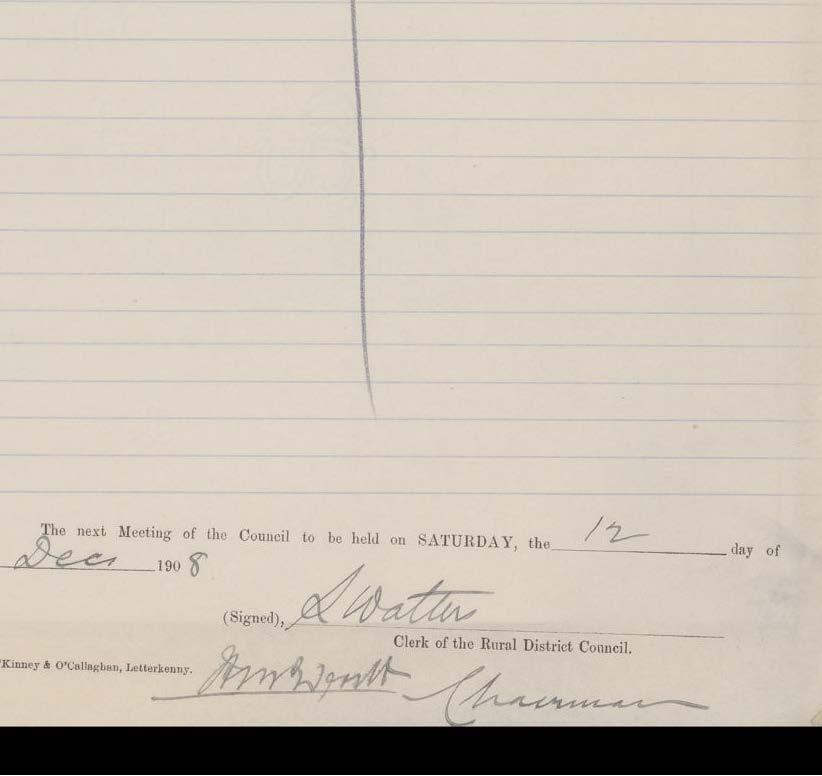 The next Meeting of the Council to be held on SATURDAY, the 12 day of
Dec 1908
(Signed), S Watters
Clerk of the Rural District Council.
'Kinney & O'Callaghan, Letterkenny.
Chairman